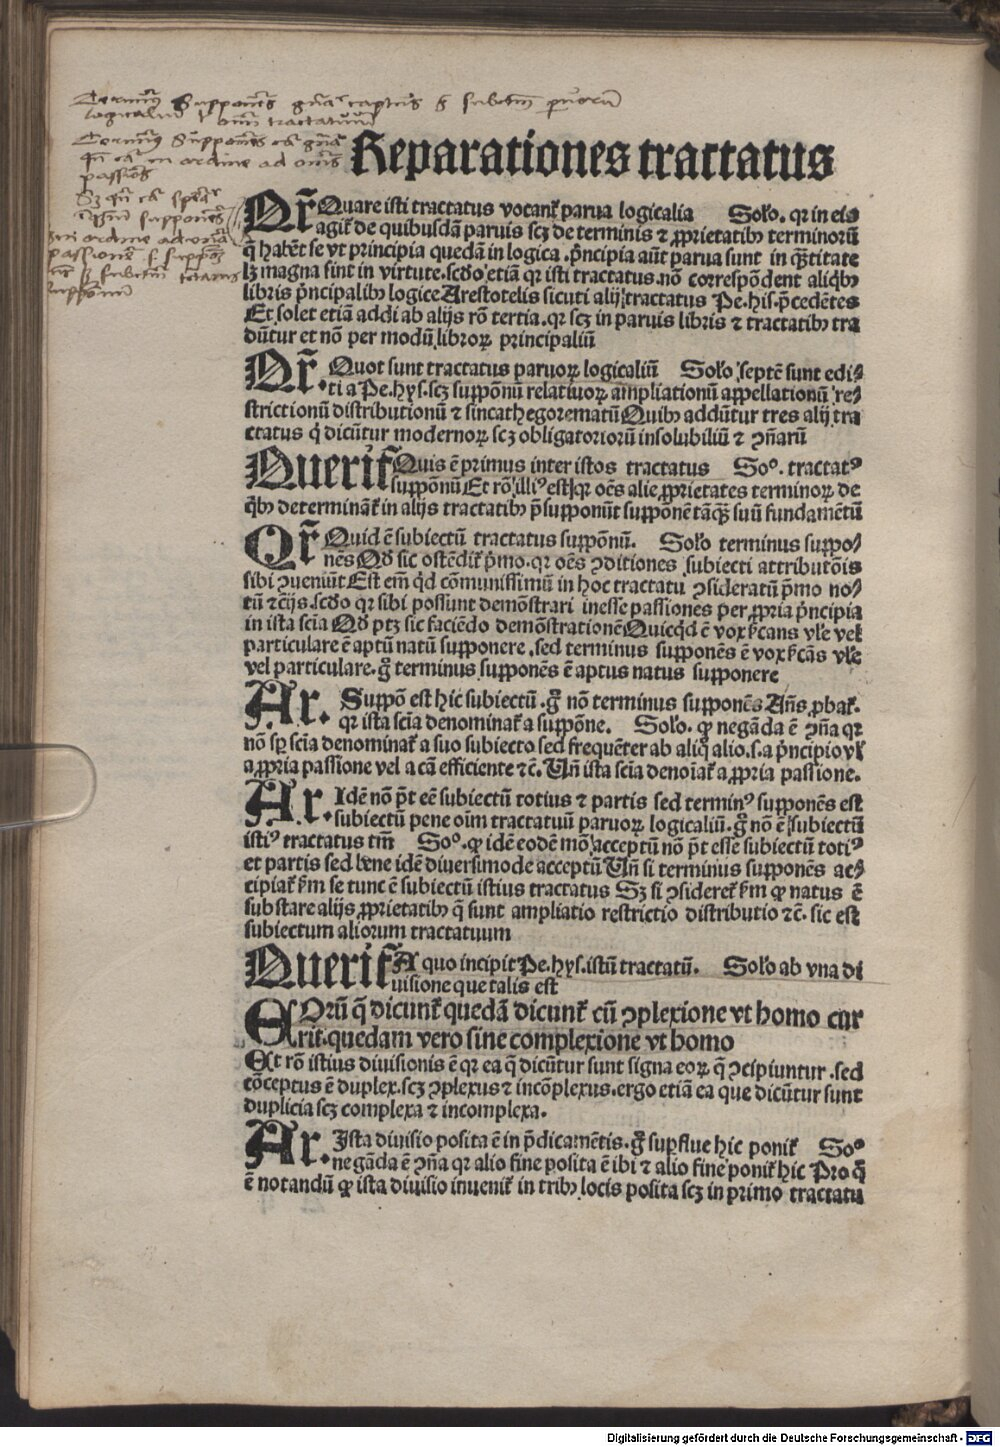 Terminus Supponens captus est subiectum paruorum
logicalium tractatuum
Terminus Supponens
in ordine ad omnes
passiones
supponens
in ordine ad
passionem
Reparationes tractatus
Qr̄ Quare isti tractatus vocant̄ parua logicalia Solo. qr in eis
agit̄ de quibusdā paruis scꝫ de terminis ⁊ ꝓprietatibꝰ terminorū
q̄ habēt se vt principia quedā in logica. p̄ncipia aūt parua sunt in q̄titate
lꝫ magna sint in virtute. scḋo etiā qr isti tractatus nō correspōdent aliqbꝰ
libris p̄ncipalibꝰ logice Arestotelis sicuti alij tractatus Pe. his. p̄cedētes
Et solet etiā addi ab alijs rō tertia. qr scꝫ in paruis libris ⁊ tractatibꝰ tra
dūtur et nō per modū libroꝝ principaliū
Qr̄. Quot sunt tractatus paruoꝝ logicaliū Solo septē sunt edi⸗
ti a Pe. hys. scꝫ suppōnū relatiuoꝝ ampliationū appellationū re⸗
strictionū distributionū ⁊ sincathegorematū Quibꝰ addūtur tres alij tra
ctatus q̇ dicūtur modernoꝝ scꝫ obligatoriorū insolubiliū ⁊ ꝯn̄arū
Querit̄ Quis ē primus inter istos tractatus Soᵒ. tractatꝰ
suppōnū Et rō illiꝰ est qr oēs alie ꝓprietates terminoꝝ de
q̇bꝰ determinat̄ in alijs tractatibꝰ p̄supponūt suppōnē tāqꝫ suū fundamētū
Qr̄ Quid ē subiectū tractatus suppōnū. Solo terminus suppo⸗
nēs Qḋ sic ostēdit̄ p̄mo. qr oēs ꝯditiones subiecti attributōis
sibi ꝯueniūt Est em̄ q̇d cōmunissimū in hoc tractatu ꝯsideratū p̄mo no⸗
tū ⁊c̄ ijs. scḋo qr sibi possunt demōstrari inesse passiones per ꝓpria p̄ncipia
in ista scīa Qḋ ptꝫ sic faciēdo demōstrationē Quicq̇d ē vox sīcans vl̄e vel
particulare ē aptū natū supponere. sed terminus supponēs ē vox sīcās vl̄e
vel particulare. g̊ terminus supponēs ē aptus natus supponere
Ar. Suppō est hic subiectū. g̊ nō terminus supponēs Añs ꝓbat̄.
qr ista scīa denominat̄ a suppōne. Solo. ꝙ negāda ē ꝯn̄a qr
nō sp̄ scīa denominat̄ a suo subiecto sed frequēter ab aliq̊ alio. s. a p̄ncipio vl̄
a ꝓpria passione vel a cā efficiente ⁊c̄. Vn̄ ista scīa denoīat̄ a ꝓpria passione.
Ar. Idē nō p̄t eē subiectū totius ⁊ partis sed terminꝰ supponēs est
subiectū pene oīm tractatuū paruoꝝ logicaliū. g̊ nō ē subiectū
istiꝰ tractatus tm̄ Soᵒ. ꝙ idē eodē mō acceptū nō p̄t esse subiectū totiꝰ
et partis sed bene idē diuersimode acceptū Vn̄ si terminus supponēs ac⸗
cipiat̄ sm̄ se tunc ē subiectū istius tractatus Sꝫ si ꝯsideret̄ sm̄ ꝙ natus ē
substare alijs ꝓprietatibꝰ q̄ sunt ampliatio restrictio distributio ⁊c̄. sic est
subiectum aliorum tractatuum
Querit̄ A quo incipit Pe. hys. istū tractatū. Solo ab vna di
uisione que talis est
EOrū q̄ dicunt̄ quedā dicunt̄ cū ꝯplexione vt homo cur
rit. quedam vero sine complexione vt homo
Et rō istius diuisionis ē qr ea q̄ dicūtur sunt signa eoꝝ q̄ ꝯcipiuntur. sed
cōceptus ē duplex. scꝫ ꝯplexus ⁊ incōplexus. ergo etiā ea que dicūtur sunt
duplicia scꝫ complexa ⁊ incomplexa.
Ar. Ista diuisio posita ē in p̄dicamētis. g̊ supflue hic ponit̄ Soᵒ
negāda ē ꝯn̄a qr alio fine posita ē ibi ⁊ alio fine ponit̄ hic Pro q̊
ē notandū ꝙ ista diuisio inuenit̄ in tribꝰ locis posita scꝫ in primo tractatu
Digitalisierung gefördert durch die Deutsche Forschungsgemeinschaft - DFG